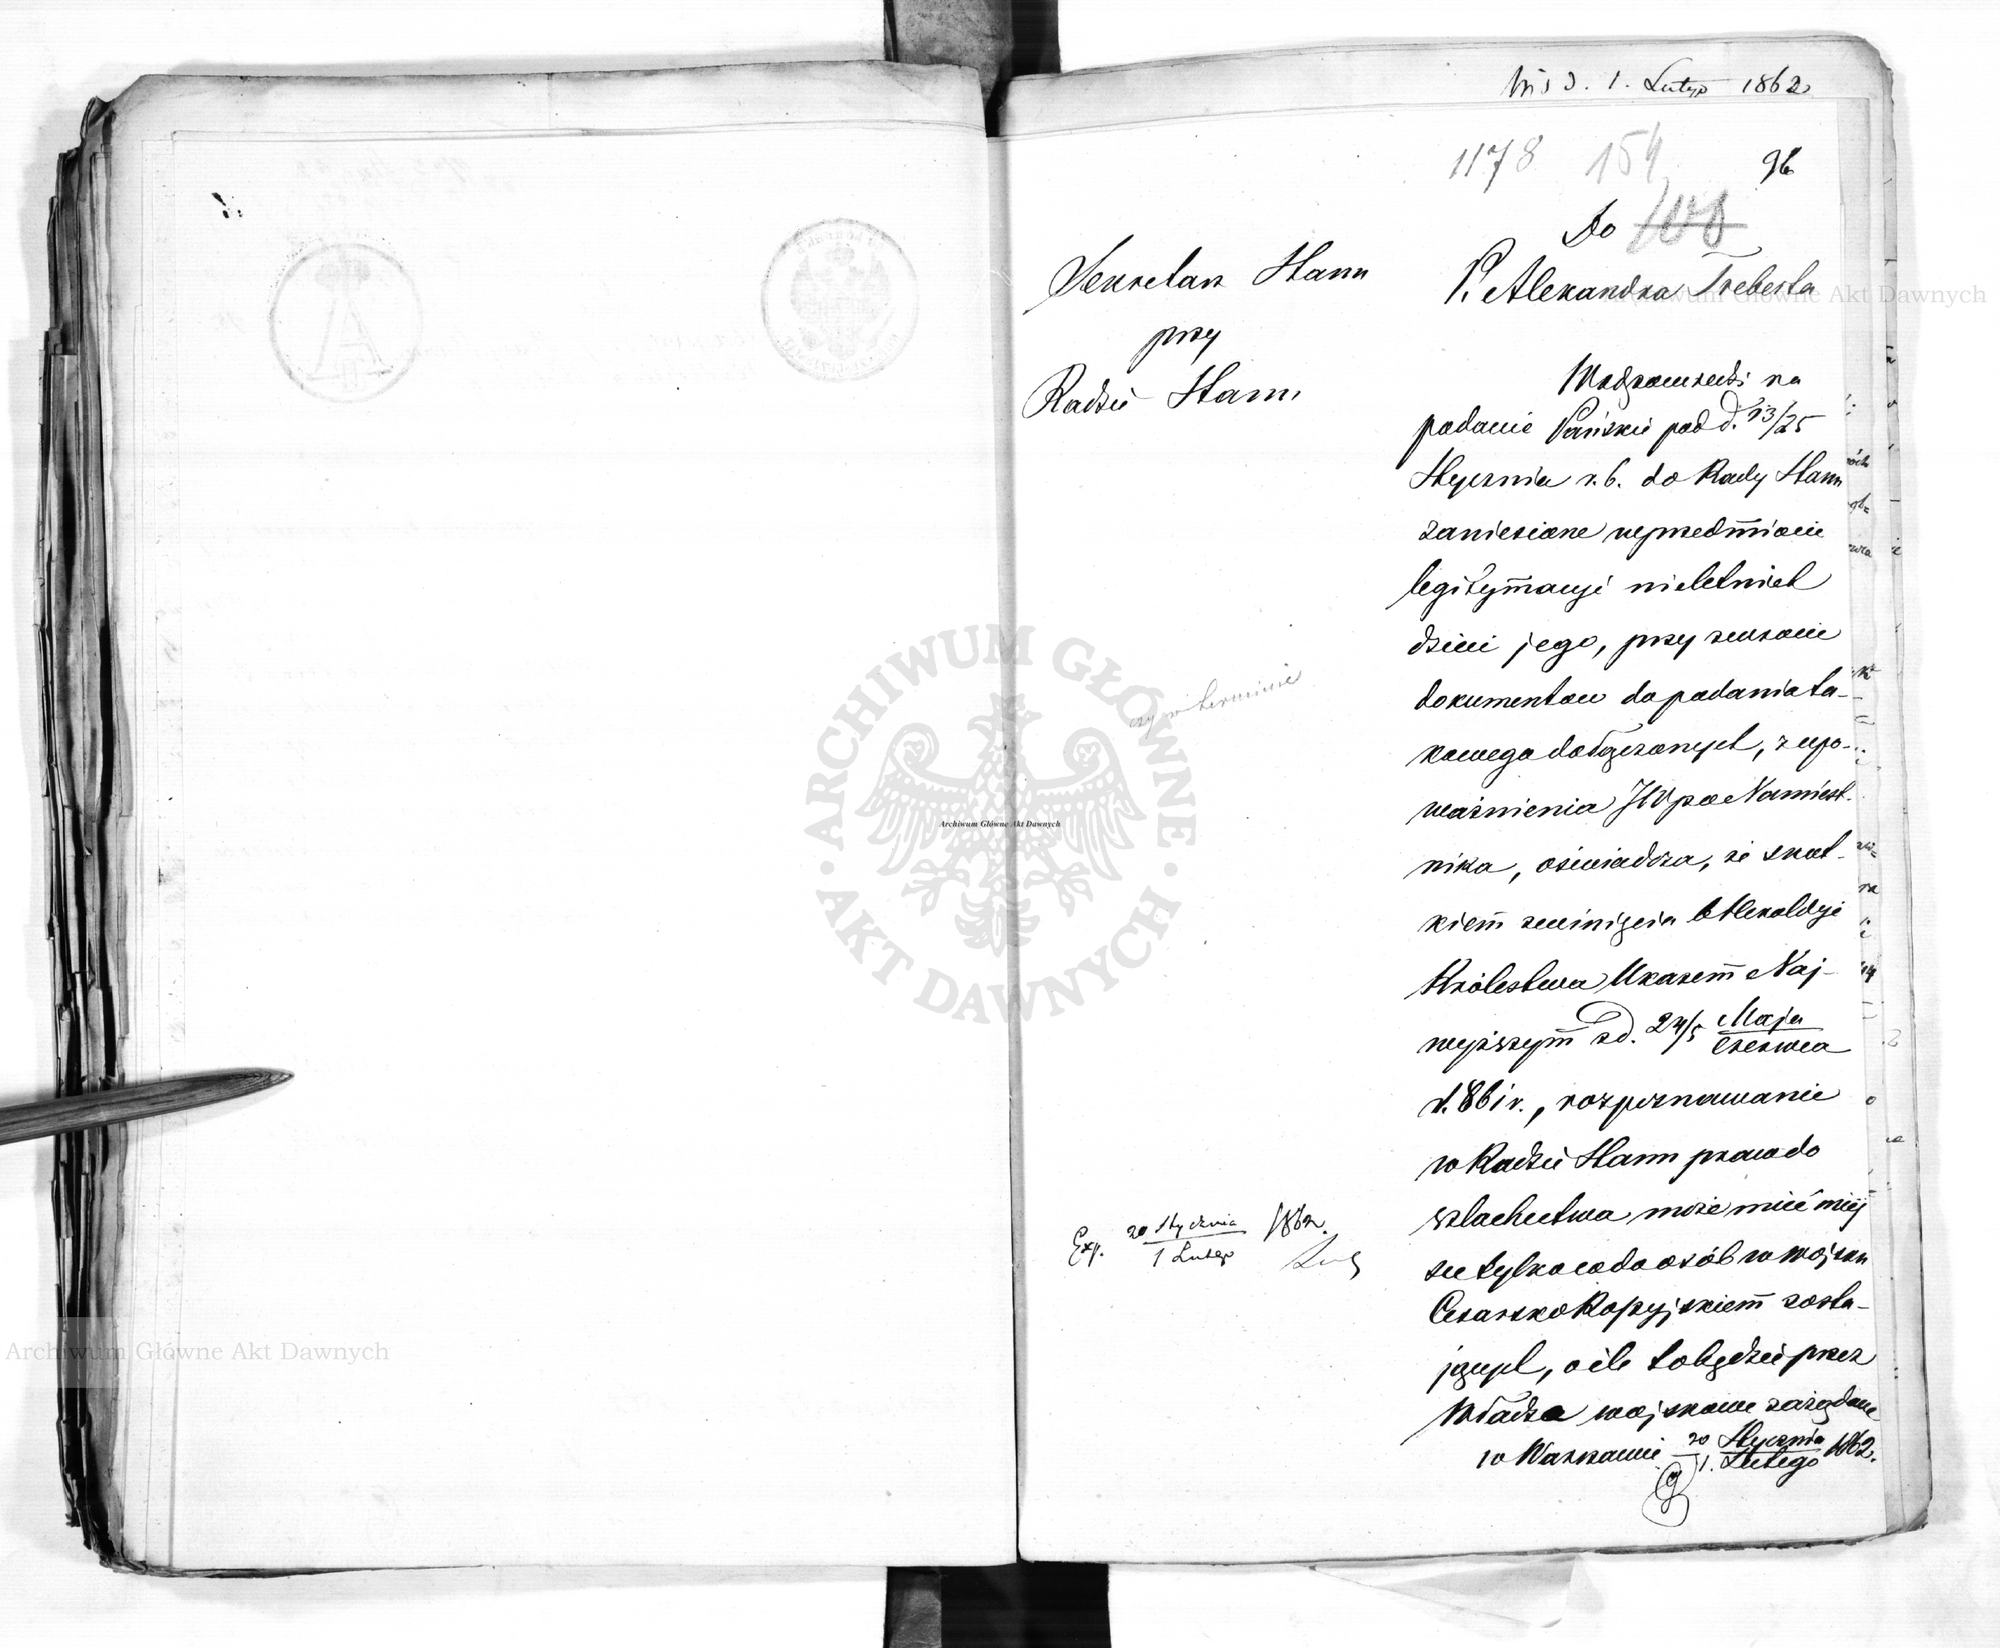 d. 1. Lutego 1862
1178 154 96
Do
P. Alexandra Treberta
Sekretarz Stanu
przy
Radzie Stanu
W odpowiedzi na
podanie Pańskie pod d. 13/25
Stycznia r. b. do Rady Stanu
zaniesione w przedmiocie
legitymacyi nieletnich
dzieci jego, przy zwrocie
dokumentów do podania ta-
kowego dołączonych, z upo-
ważnienia JW pa Namiest-
nika, oświadcza, że skut-
kiem zwinięcia Heroldyi
Królestwa Ukazem Naj-
wyższym z d. 24/5 Maja/Czerwca
1861 r., rozpoznawanie
w Radzie Stanu praw do
szlachectwa może mieć miej
sce tylko co do osób w wojsku
Cesarsko Rossyjskiem zosta-
jących, o ile to będzie przez
Władze wojskowe zażądane
w Warszawie 20 Stycznia/1. Lutego 1862.
czy w terminie
Exp. 20 Stycznia/1 Lutego 1862
ARCHIWUM GŁÓWNE AKT DAWNYCH
Archiwum Główne Akt Dawnych
Archiwum Główne Akt Dawnych
Archiwum Główne Akt Dawnych